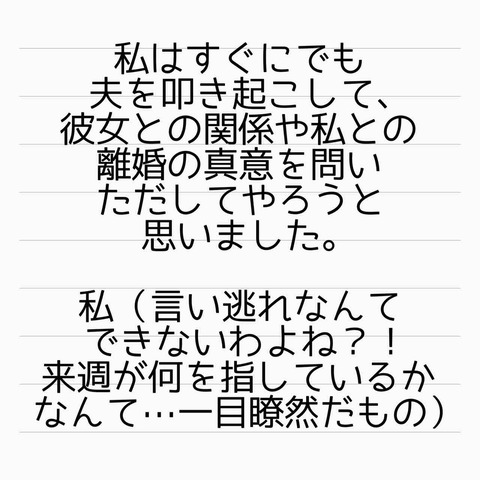 私はすぐにでも
夫を叩き起こして、
彼女との関係や私との
離婚の真意を問い
ただしてやろうと
思いました。
私（言い逃れなんて
できないわよね？！
来週が何を指しているか
なんて…一目瞭然だもの）